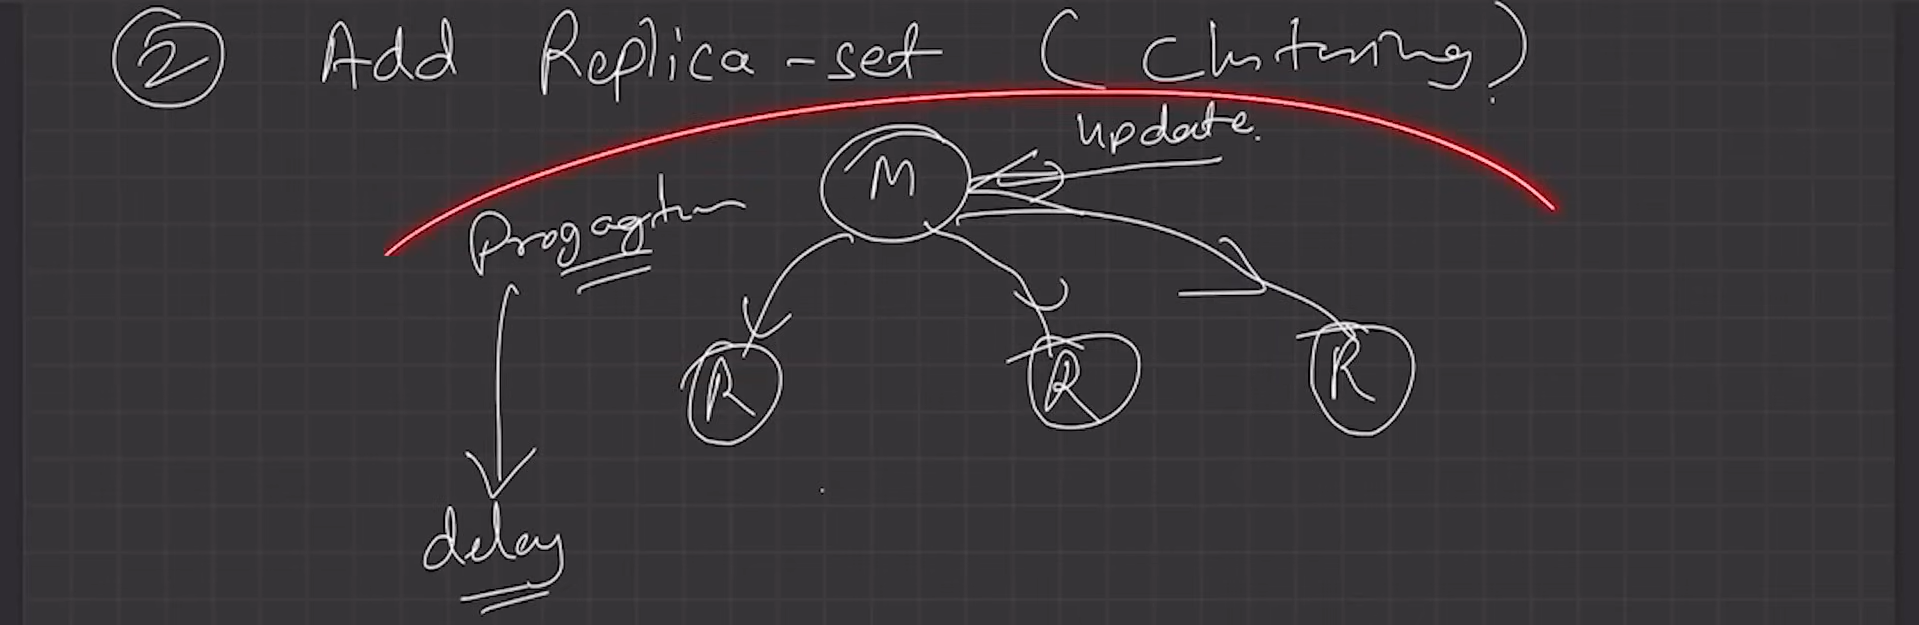 ② Add Replica-set (Clustering)
update.
M
Progagation
R R R
delay